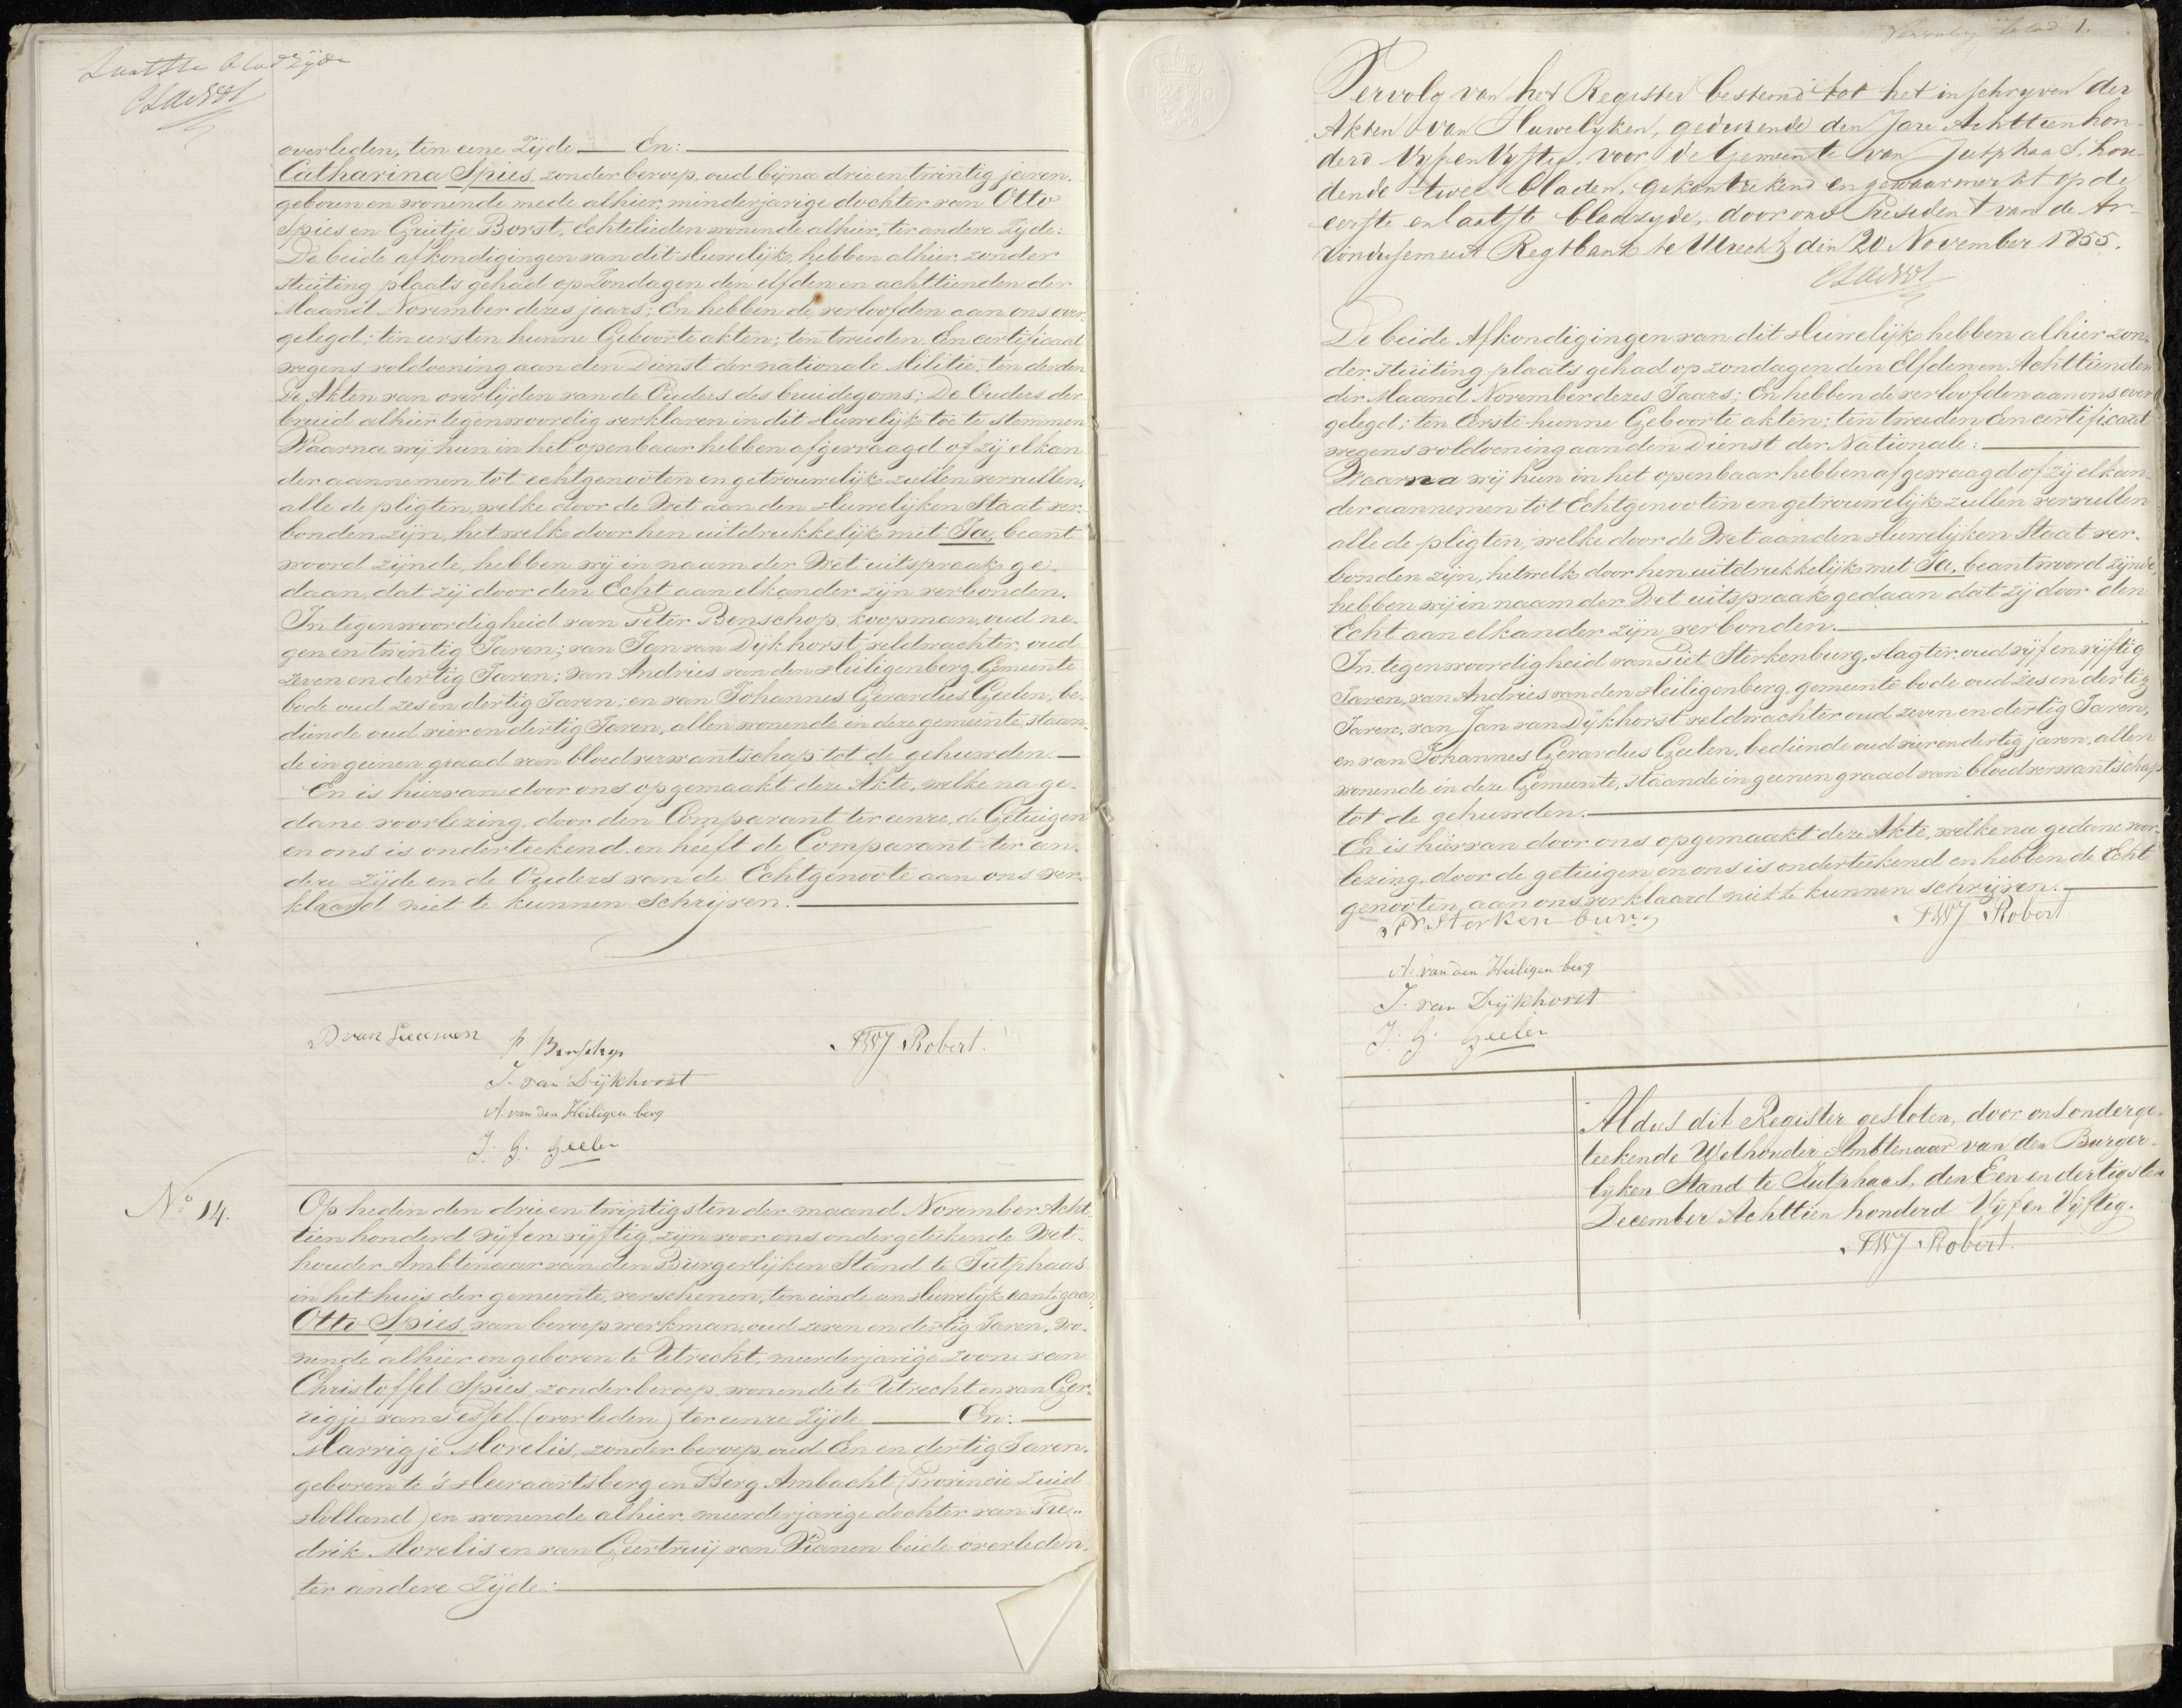 Laatste bladzijde
overleden, ten eene Zijde — En:
Catharina Spies, zonder beroep, oud bijna drie en twintig jaren.
geboren en wonende mede alhier, minderjarige dochter van Otto
Spies en Grietje Borst, Echtelieden wonende alhier, ter andere Zijde:
De beide afkondigingen van dit Huwelijk, hebben alhier zonder
stuiting plaats gehad op Zondagen den elfden en achttienden der
Maand November dezes jaars; En hebben de verloofden aan ons over-
gelegd; ten eersten hunne Geboorte akten; ten tweeden, Een certificaat
wegens voldoening aan den Dienst der nationale Militie; ten derden
De Akten van overlijden van de Ouders des bruidegoms; De Ouders der
bruid alhier tegenwoordig verklaren in dit Huwelijk toe te stemmen
Waarna wij hun in het openbaar hebben afgevraagd of zij elkan
der aannemen tot echtgenooten en getrouwelijk zullen vervullen,
alle de pligten, welke door de Wet aan den Huwelijken Staat ver-
bonden zijn, hetwelk door hen uitdrukkelijk met Ja, beant
woord zijnde, hebben wij in naam der Wet uitspraak ge-
daan, dat zij door den Echt aan elkander zijn verbonden.
In tegenwoordigheid van Peter Benschop, koopman, oud ne-
gen en twintig Jaren; van Jan van Dijkhorst, veldwachter, oud
zeven en dertig Jaren; van Andries van den Heiligenberg, Gemeente
bode oud zes en dertig Jaren; en van Johannes Gerardus Geelen, be-
diende oud vier en dertig Jaren, allen wonende in deze gemeente, staan-
de in geenen graad van bloedverwantschap tot de gehuwden. —
En is hiervan door ons opgemaakt deze Akte, welke na ge-
dane voorlezing, door den Comparant ter eenre, de Getuigen
en ons is onderteekend, en heeft de Comparant ter an-
dere Zijde en de Ouders van de Echtgenoote aan ons ver-
klaard niet te kunnen Schrijven. —
D van Leeuwen
P Benschop
FWJ Robert.
J. van Dijkhorst
A. van den Heiligen berg
J. G. Geelen
No 14.
Op heden den drie en twintigsten der maand November Acht-
tien honderd vijf en vijftig, zijn voor ons ondergeteekende Wet-
houder Ambtenaar van den Burgerlijken Stand te Jutphaas
in het huis der gemeente, verschenen, ten einde een Huwelijk aan te gaan
Otto Spies, van beroep werkman, oud zeven en dertig Jaren, wo-
nende alhier en geboren te Utrecht, meerderjarige zoon van
Christoffel Spies, zonder beroep, wonende te Utrecht en van Ger-
rigje van Tessel (overleden) ter eenre Zijde — En: —
Marrigje Morelis, zonder beroep, oud Een en dertig Jaren.
geboren te 's Heeraartsberg en Berg Ambacht (Provincie Zuid
Holland) en wonende alhier, meerderjarige dochter van Fre-
drik Morelis en van Geertruij van Vianen beide overleden,
ter andere Zijde: —
Vervolg blad 1.
Vervolg van het Register bestemd tot het inschryven der
Akten van Huwelyken, gedurende den Jare Achttienhon-
derd Vyf en Vyftig, voor de Gemeente van Jutphaas, hou-
dende twee bladen, gekantteekend en gewaarmerkt op de
eerste en laatste bladzyde, door ons President van de Ar-
rondissement Regtbank te Utrecht, den 20 November 1855.
De beide Afkondigingen van dit Huwelijk hebben alhier zon-
der stuiting plaats gehad op zondagen den Elfden en Achttienden
der Maand November dezes Jaars; En hebben de verloofden aan ons over
gelegd; ten Eerste hunne Geboorte akten; ten tweeden Een certificaat
wegens voldoening aan den Dienst der Nationale: —
Waarna wij hun in het openbaar hebben afgevraagd of zij elkan-
der aannemen tot Echtgenooten en getrouwelijk zullen vervullen
alle de pligten, welke door de Wet aan den Huwelijken Staat ver-
bonden zijn, hetwelk door hen uitdrukkelijk met Ja, beantwoord zijnde,
hebben wij in naam der Wet uitspraak gedaan dat zij door den
Echt aan elkander zijn verbonden. —
In tegenwoordigheid van Piet Sterkenburg, slagter, oud vijf en vijftig
Jaren, van Andries van den Heiligenberg, gemeente bode oud zes en dertig
Jaren, van Jan van Dijkhorst veldwachter oud zeven en dertig Jaren,
en van Johannes Gerardus Geelen, bediende oud vier en dertig jaren, allen
wonende in deze Gemeente, staande in geenen graad van bloedverwantschap
tot de gehuwden. —
En is hiervan door ons opgemaakt deze Akte, welke na gedane voor-
lezing, door de getuigen en ons is onderteekend en hebben de Echt
genooten aan ons verklaard niet te kunnen schrijven. —
P Sterkenburg
FWJ Robert
A. van den Heiligen berg
J. van Dijkhorst
J. G. Geelen
Aldus dit Register gesloten, door ons onderge-
teekende Wethouder Ambtenaar van den Burger-
lyken Stand te Jutphaas, den Een en dertigsten
December Achttien honderd Vijf en Vijftig.
FWJ Robert.